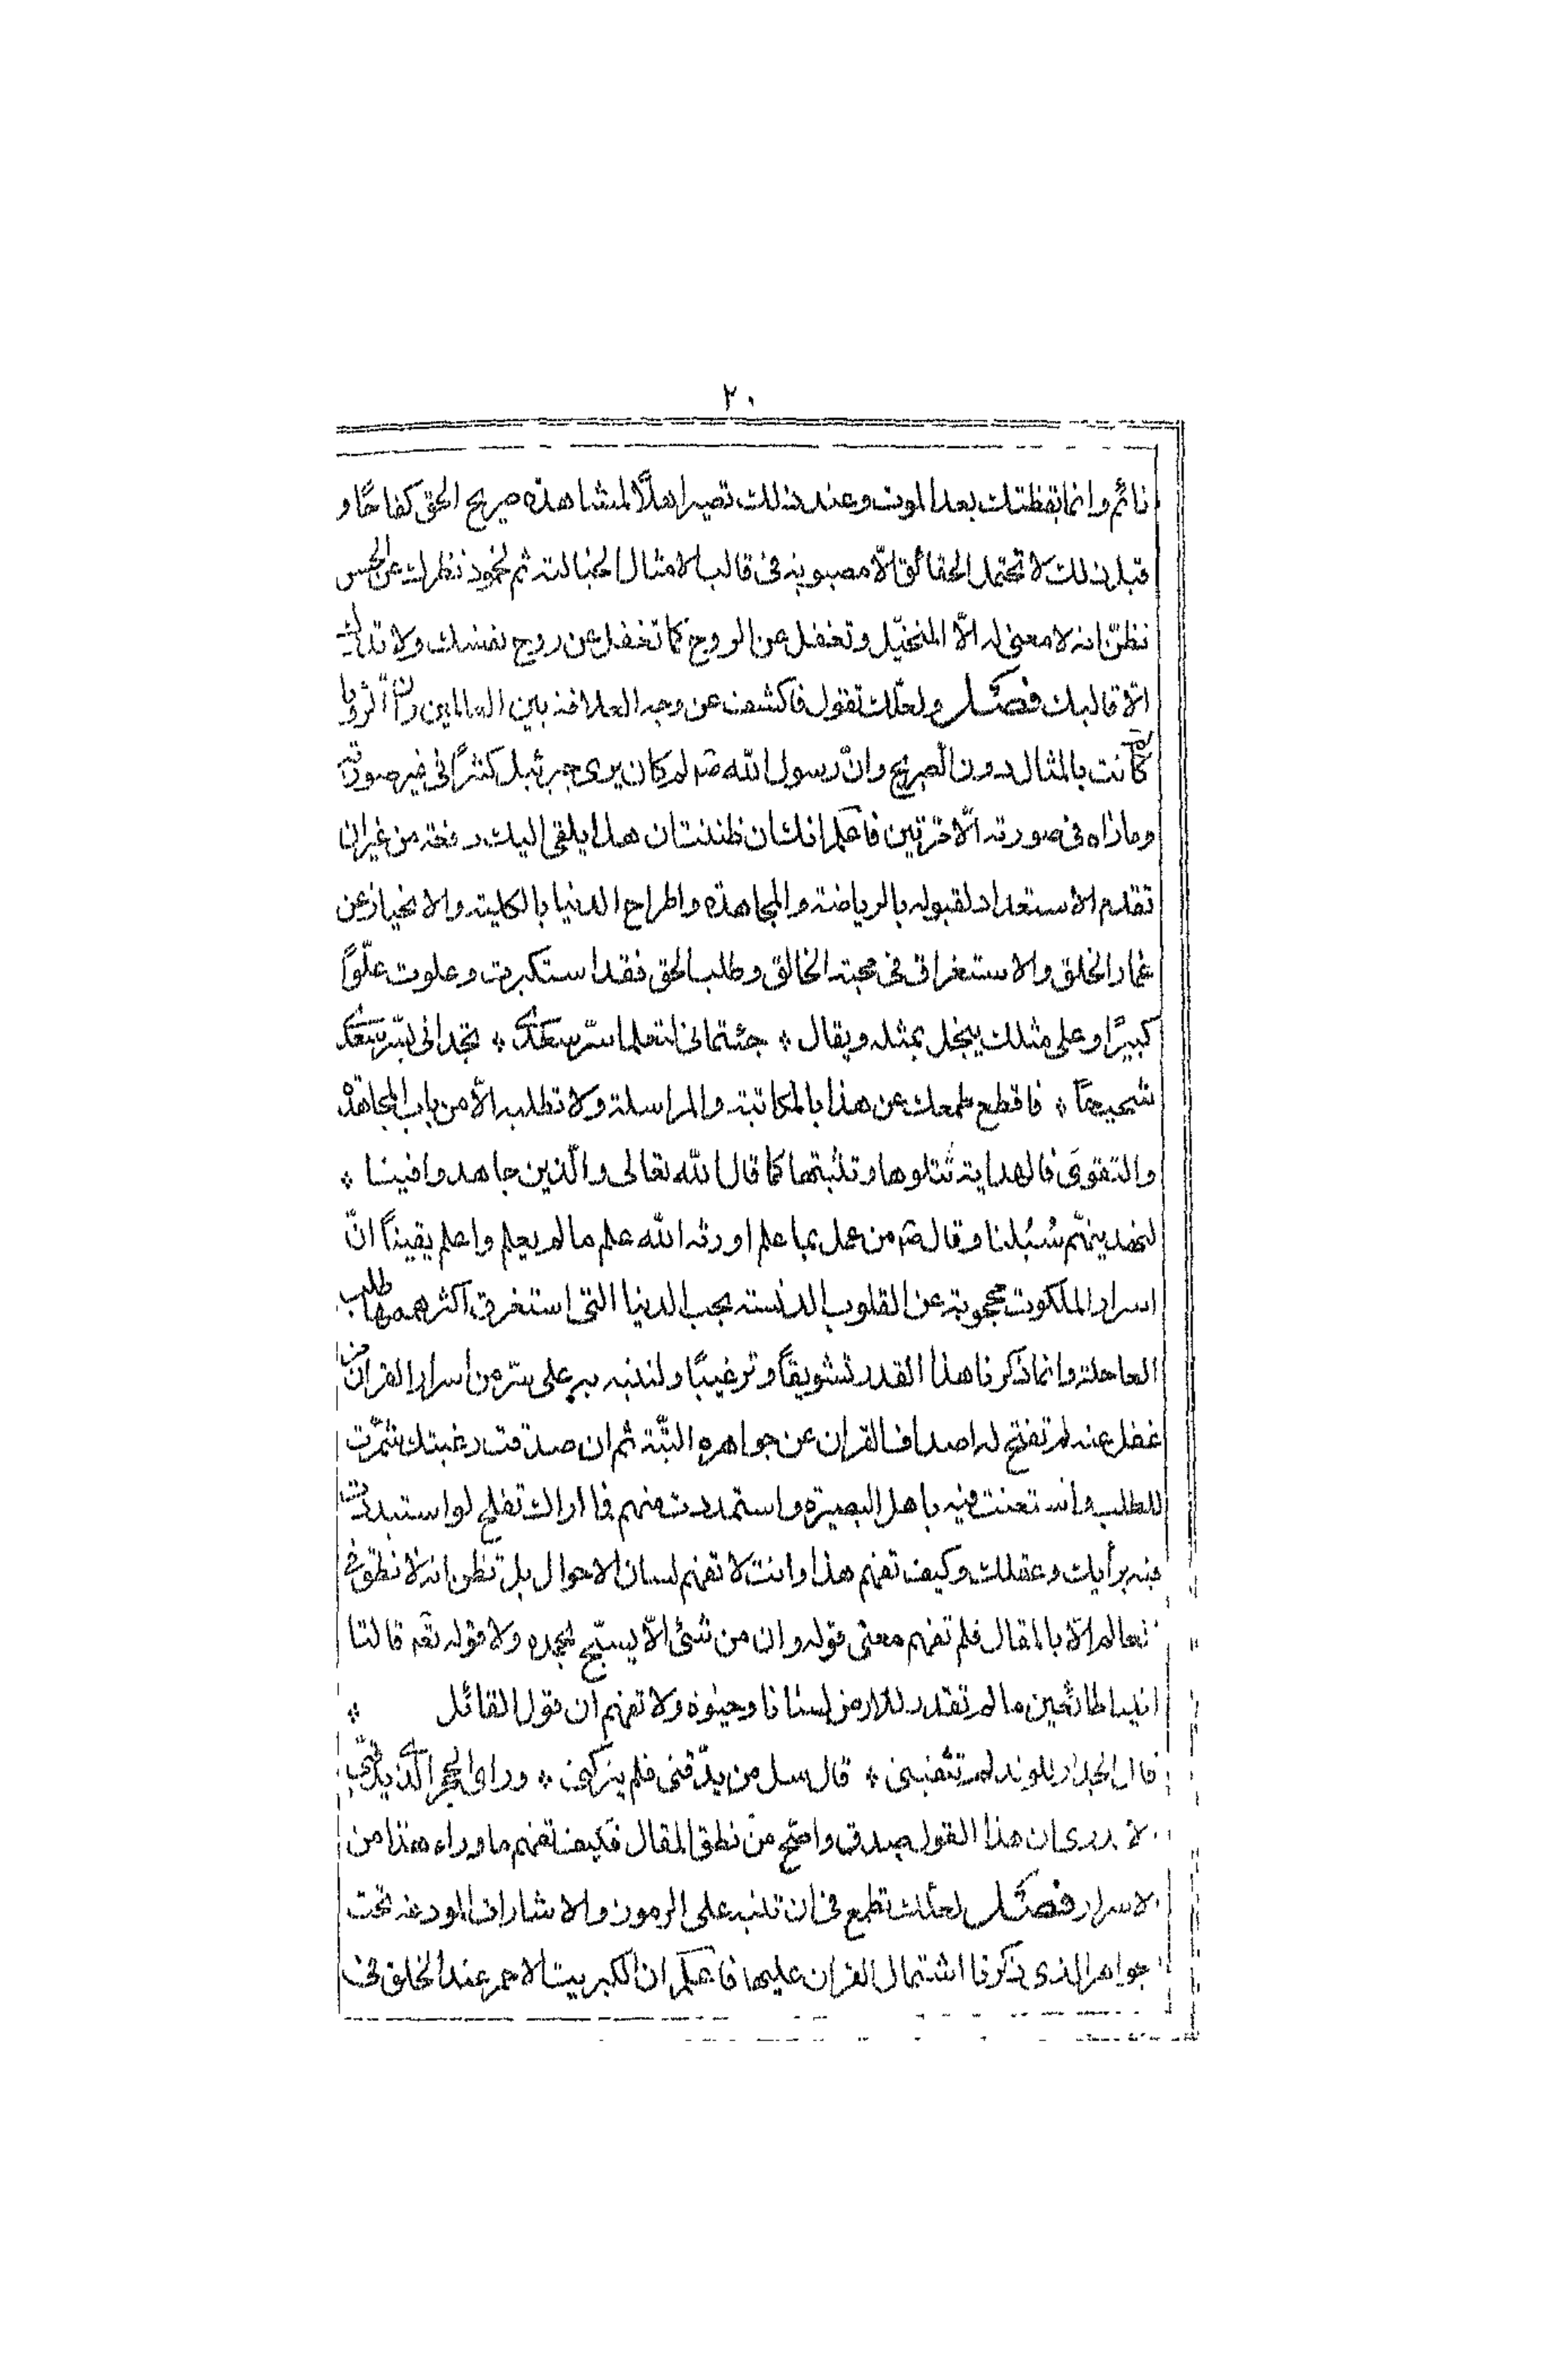 ٢٠
نائم وانما يقظتك بعد الموت وعند ذلك تصير اهلًا لمشاهدة صريح الحق كفاحًا و
قبل ذلك لا تحتمل الحقائق الّا مصبوبة فى قالب الامثال الخيالية ثم لجمود نظرك على الحس
تظنّ انه لا معنى له الّا المتخيّل وتغفل عن الروح كما تغفل عن روح نفسك ولا تدرك
الّا قالبك فصـل ولعلّك تقول فاكشف عن وجه العلاقة بين العالمين وانّ الرّؤيا
لم كانت بالمثال دون الصريح وانّ رسول الله صَ لم كان يرى جبرئيل كثيرًا فى غير صورته
وما رٰاه فى صورته الّا مرّتين فاعلم انك ان ظننت ان هذا يلقى اليك دفعة من غير ان
تقدم الاستعداد لقبوله بالرياضة والمجاهدة واطراح الدنيا بالكلية والانحياز عن
غمار الخلق والاستغراق فى محبة الخالق وطلب الحق فقد استكبرت وعلوت علّوًا
كبيرًا وعلى مثلك يبخل بمثله ويقال * جئتمانى لتعلما سرّ سعدى * تجدانى بسرّ سعدى
شحيحًا * فاقطع طمعك عن هذا بالمكاتبة والمراسلة ولا تطلبه الّا من باب المجاهدة
والتقوى فالهداية تتلوها وتثبتها كما قال الله تعالى والّذين جاهدوا فينا *
لنهدينّهم سُبُلنا وقال صَ من عمل بما علم اورثه الله علم ما لم يعلم واعلم يقينًا انّ
اسرار الملكوت محجوبة عن القلوب الدنسة بحب الدنيا التى استغرق اكثر هممها طلب
العاجلة وانما ذكرنا هذا القدر تشويقًا وترغيبًا ولننبه به على سرّ من اسرار القران من
غفل عنه لم تفتح له اصداف القران عن جواهره البتّة ثم ان صدقت رغبتك شمّرت
للطلب واستعنت فيه باهل البصيرة واستمددت منهم فما اراك تفلح لو استبددت
فيه برأيك وعقلك وكيف تفهم هذا وانت لا تفهم لسان الاحوال بل تظن انه لا نطق فى
العالم الّا بالمقال فلم تفهم معنى قوله وان من شئ الّا يسبّح بحمده ولا قوله تعَ قالتا
اتينا طائعين ما لم تقدر للارض لسانا وحيٰوة ولا تفهم ان قول القائل *
قال الجدار للوتد لم تثقبنى * قال سل من يدّقنى فلم يتركنى * وراى الحجر الّذى يدقّنى
لا يدرى ان هذا القول صدق واصّح من نطق المقال فكيف تفهم ما وراء هذا من
الاسرار فصـل لعلّك تطمع فى ان تنبه على الرموز والاشارات المودعة تحت
الجواهر الذى ذكرنا اشتمال القران عليها فاعلم ان الكبريت الاحمر عند الخلق فى